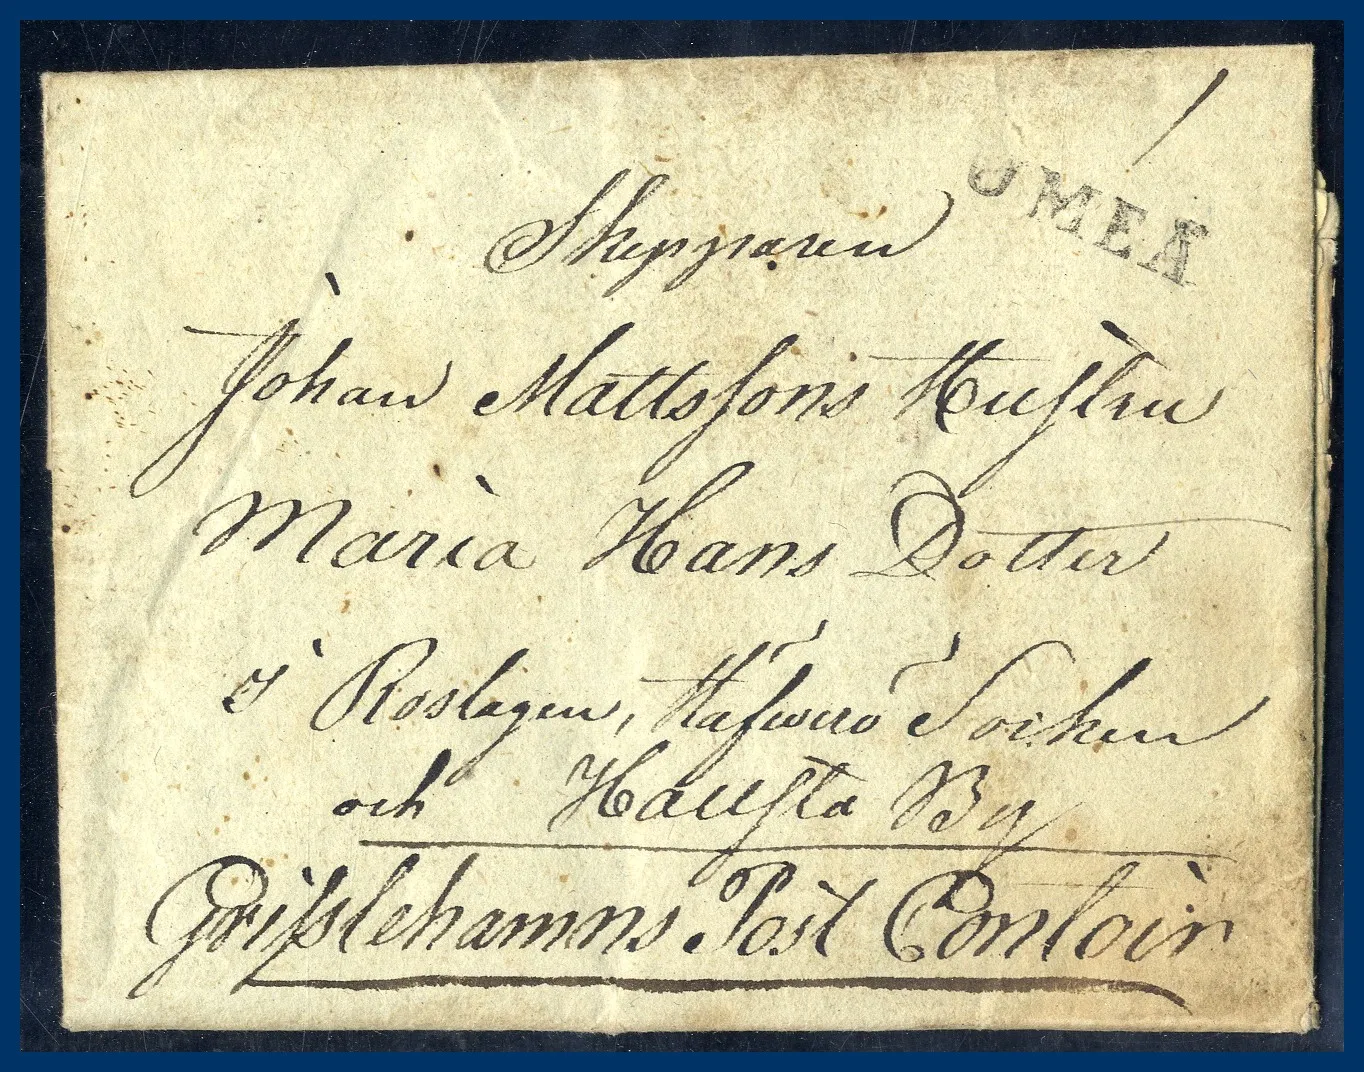 UMEÅ
Skepparen
Johan Mattssons Hustru
Maria Hans Dotter
i Roslagen, Häfwerö Socken
och Hausta By
Grisslehamns Post Contoir